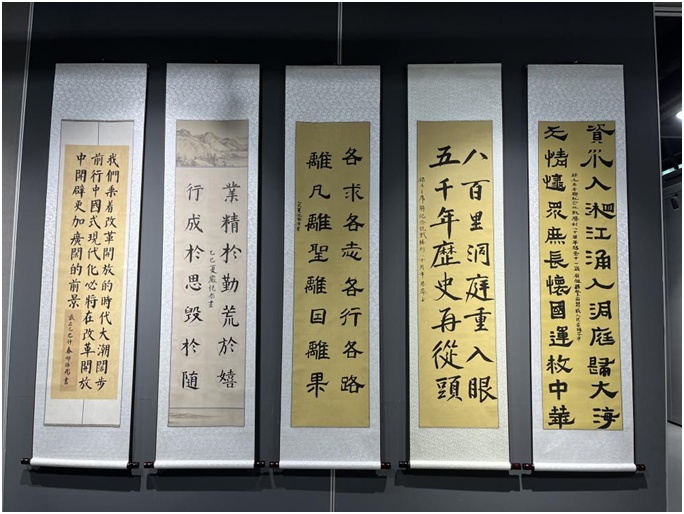 資水入湘江涌入洞庭歸大海
情眾庶長懷國運救中華
八百里洞庭重入眼
五千年歷史再從頭
各求各志各行各路
離凡離聖離因離果
業精於勤荒於嬉
行成於思毀於随
乙巳夏
我們乘着改革開放的時代大潮闊步
前行中國式現代化必將在改革開放
中開辟更加廣闊的前景